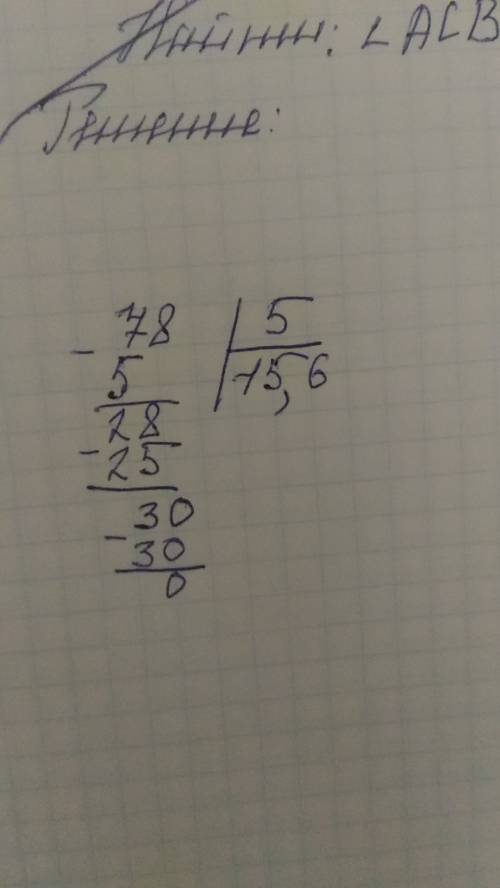 Найти: ∠ACB
Решение:
-78 | 5
5 | 15,6
28
-25
30
-30
0